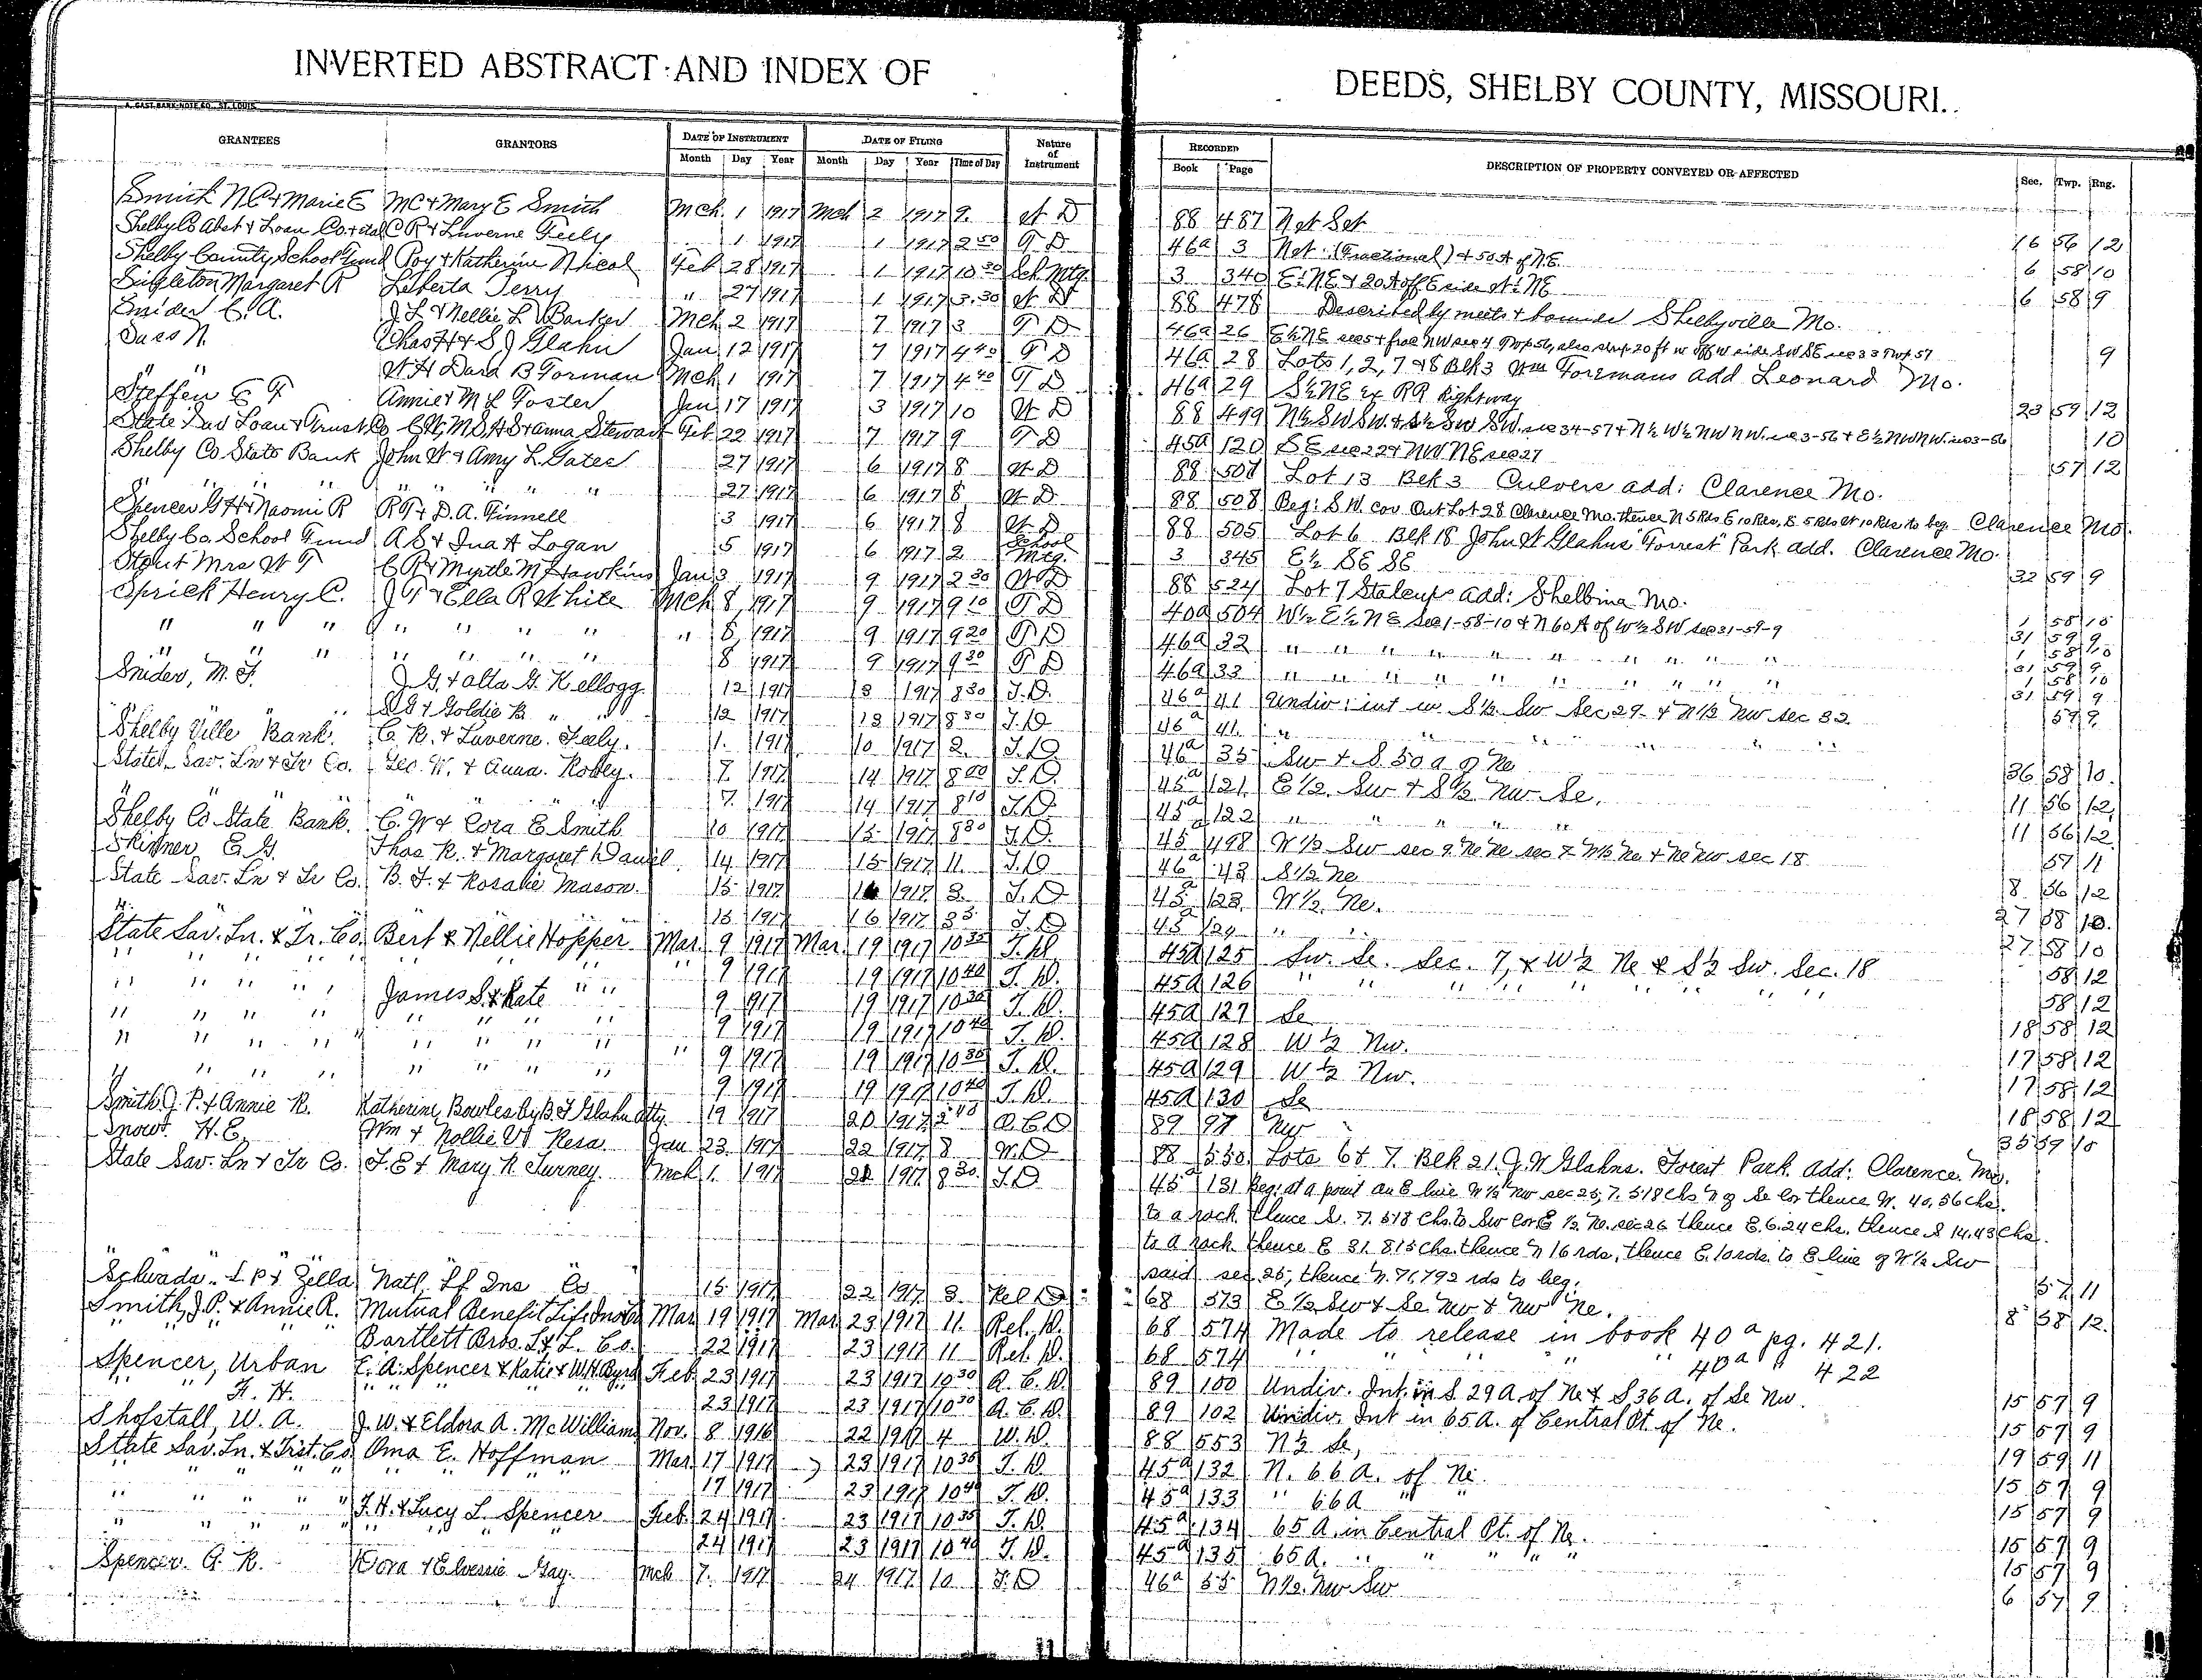 INVERTED ABSTRACT AND INDEX OF DEEDS, SHELBY COUNTY, MISSOURI.
A. GAST BANK NOTE CO., ST. LOUIS
GRANTEES GRANTORS DATE OF INSTRUMENT DATE OF FILING Nature of Instrument RECORDED DESCRIPTION OF PROPERTY CONVEYED OR AFFECTED Sec. Twp. Rng.
Month Day Year Month Day Year Time of Day Book Page
Smith N C & Marie E M C & Mary E Smith Mch. 1 1917 Mch 2 1917 9. W D 88 487
Shelby Co Abst & Loan Co & C R & Luverne Feely 1 1917 1 1917 2 50 T D 46a 3 (Fractional) & 50 A of N.E. 16 56 12
Shelby County School Fund Roy & Katherine Nicol Feb 28 1917 1 1917 10 30 Sch. Mtg. 3 340 E½ N.E & 20 A off E side W½ NE 6 58 10
Singleton Margaret R Leberta Perry " 27 1917 1 1917 3.30 W D 88 478 Described by meets & bounds Shelbyville Mo. 6 58 9
Snider C. A. J L & Nellie L Barker Mch 2 1917 7 1917 3 T D 46a 26
N. Chas H & S J Glahn Jan 12 1917 7 1917 4 40 T D 46a 28 Lots 1, 2, 7 & 8 Blk 3 Wm Foremans add Leonard Mo. 9
" " W H Forman Mch 1 1917 7 1917 4 40 T D 46a 29 S½ NE ex RR Rightway 23 59 12
Steffen E F Annie & M L Foster Jan 17 1917 3 1917 10 W D 88 499 N½ SW SW. & S½ SW SW. sec 34-57 & N½ W½ NW NW. sec 3-56 & E½ NW NW. sec 3-56 10
State Sav Loan & Trust Co & Anna Stewart Feb 22 1917 7 1917 9 T D 45a 120 SE sec 22 & NW NE sec 27 57 12
Shelby Co State Bank John W & Amy L. Gates 27 1917 6 1917 8 W D 88 507 Lot 13 Blk 3 Culvers add: Clarence Mo.
" " " " " " " " 27 1917 6 1917 8 W D 88 508 Beg: S.W. cor Out Lot 28 Clarence Mo. thence N 5 Rds E 10 Rds, S. 5 Rds W 10 Rds to beg Clarence Mo.
Spencer G H & Naomi R R T & D. A. Finnell 3 1917 6 1917 8 W D 88 505 Lot 6 Blk 18 John W Glahns "Forrest" Park add. Clarence Mo.
Shelby Co. School Fund A S & Ina A Logan 5 1917 6 1917 2 School Mtg. 3 345 E½ SE SE 32 59 9
Stout Mrs W T C R & Myrtle M Hawkins Jan 3 1917 9 1917 2 30 W D 88 524 Lot 7 Staleups add: Shelbina Mo.
Sprick Henry C. J T & Ella R White Mch 8 1917 9 1917 9 10 T D 40a 504 W½ E½ NE sec 1-58-10 & N 60 A of W½ SW sec 31-59-9 1 58 10 31 59 9
" " " " " " " " " 8 1917 9 1917 9 20 T D 46a 32 " " " " " " " " " 1 58 10 31 59 9
" " " " " " " " 8 1917 9 1917 9 30 T D 46a 33 " " " " " " " " " 1 58 10 31 59 9
Snider, M. F. J. G. & Alta G. Kellogg. 12 1917 13 1917 8 30 T. D. 46a 41 Undiv: int in S½ Sw Sec 29. & N½ Nw sec 32 59 9
" " & Goldie B " " 12 1917 13 1917 8 30 T. D 46a 41. " " " " " "
Shelby Ville Bank. C. R. & Luverne. Feely. 1. 1917 10 1917 2. T. D. 46a 35 Sw & S. 50 a of Ne 36 58 10.
State Sav. Ln & Tr Co. Geo. W. & Anna. Robey. 7 1917 14 1917 8 00 T. D. 45a 121 E½. Sw & S½ Nw Se. 11 56 12
" " " " " " 7 1917 14 1917 8 10 T. D. 45a 122 " " " " 11 56 12
Shelby Co State Bank. C. W & Cora E Smith 10 1917 15 1917 8 30 T. D. 45 498 W½ Sw sec 9. Ne Ne sec 7 N½ Ne & Ne Nw sec 18 57 11
Skinner E. G. Thos R. & Margaret Daniel 14 1917 15 1917 11. T. D 46a 43 S½ Ne 8 56 12
State Sav. Ln & Tr Co. B. F. & Rosalie Mason. 15 1917 16 1917 3. T. D 45a 123 W½ Ne. 27 58 10.
" " " 15 1917 16 1917 3 5 T. D 45a 124 " " 27 58 10
State Sav. Ln. & Tr. Co. Bert & Nellie Hopper Mar. 9 1917 Mar. 19 1917 10 35 T. D 45a 125 Sw. Se. Sec. 7, & W½ Ne & S½ Sw. Sec. 18 58 12
" " " " " " " " 9 1917 19 1917 10 40 T. D. 45a 126 " " " " " " " " " 58 12
" " " " James S. & Kate " " 9 1917 19 1917 10 35 T. D. 45a 127 Se 18 58 12
" " " " " " " " 9 1917 19 1917 10 40 T. D. 45a 128 W½ Nw. 17 58 12
" " " " " " " " " 9 1917 19 1917 10 35 T. D. 45a 129 W½ Nw. 17 58 12
" " " " " " " " 9 1917 19 1917 10 40 T. D. 45a 130 Se 18 58 12
Smith J. P. & Annie R. Katherine Bowles by B F Glahn atty 19 1917 20 1917 2 40 Q. C. D 89 97 Nw 35 59 10
Snow. H. E. Wm & Nollie Jan 23. 1917 22 1917 8 W. D 88 550 Lots 6 & 7. Blk 21. J. W Glahns. Forest Park. add: Clarence. Mo.
State Sav. Ln & Tr Co. F. E & Mary R. Turney. Mch 1. 1917 21 1917 8 30. T. D 45a 131 Beg: at a point on E line W½ Nw sec 25, 7. 518 chs N of Se Cor thence W. 40.56 chs.
to a rock. thence S. 7. 518 chs. to Sw Cor E½ Ne. sec 26 thence E. 6.24 chs. thence S 14.43 chs.
to a rock thence E 31. 815 chs. thence N 16 rds, thence E. 10 rds. to E line of W½ Sw
said sec. 25, thence N. 71,792 rds to beg. 57 11
Schwada.. L P & Zella Natl. Lf Ins Co 15 1917 22 1917 3. Rel D 68 573 E½ Sw & Se Nw & Nw Ne. 8 58 12.
Smith, J. P. & Annie R. Mutual Benefit Life Ins Co Mar 19 1917 Mar 23 1917 11. Rel. D. 68 574 Made to release in book 40a pg. 421.
" " " " " Bartlett Bros. L. & L. Co. 22 1917 23 1917 11 Rel. D. 68 574 " " " " 40a " 422
Spencer, Urban E. A. Spencer & Katie & W. H. Byrd Feb 23 1917 23 1917 10 30 Q. C. D. 89 100 Undiv. Int. in S 29 A. of Ne & S 36 A. of Se Nw. 15 57 9
" F. H. " " " " " " 23 1917 23 1917 10 30 Q. C. D. 89 102 Undiv. Int in 65 A. of Central Pt. of Ne. 15 57 9
Shofstall, W. A. J. W. & Eldora A. McWilliams Nov. 8 1916 22 1917 4 W. D. 88 553 N½ Se, 19 59 11
State Sav. Ln. & Trst. Co Oma E. Hoffman Mar. 17 1917 23 1917 10 35 T. D. 45a 132 N. 66 A. of Ne. 15 57 9
" " " " " " " " 17 1917 23 1917 10 40 T. D. 45a 133 " 66 A " " 15 57 9
" " " " " F. H. & Lucy L. Spencer Feb. 24 1917 23 1917 10 35 T. D. 45a 134 65 A. in Central Pt. of Ne. 15 57 9
" " " " " " " " " " 24 1917 23 1917 10 40 T. D. 45a 135 65 A. " " " " " 15 57 9
Spencer. G. R. Dora & Elvessie Gay. Mch 7. 1917 24 1917 10 T. D 46a 55 N½. Nw Sw 6 57 9